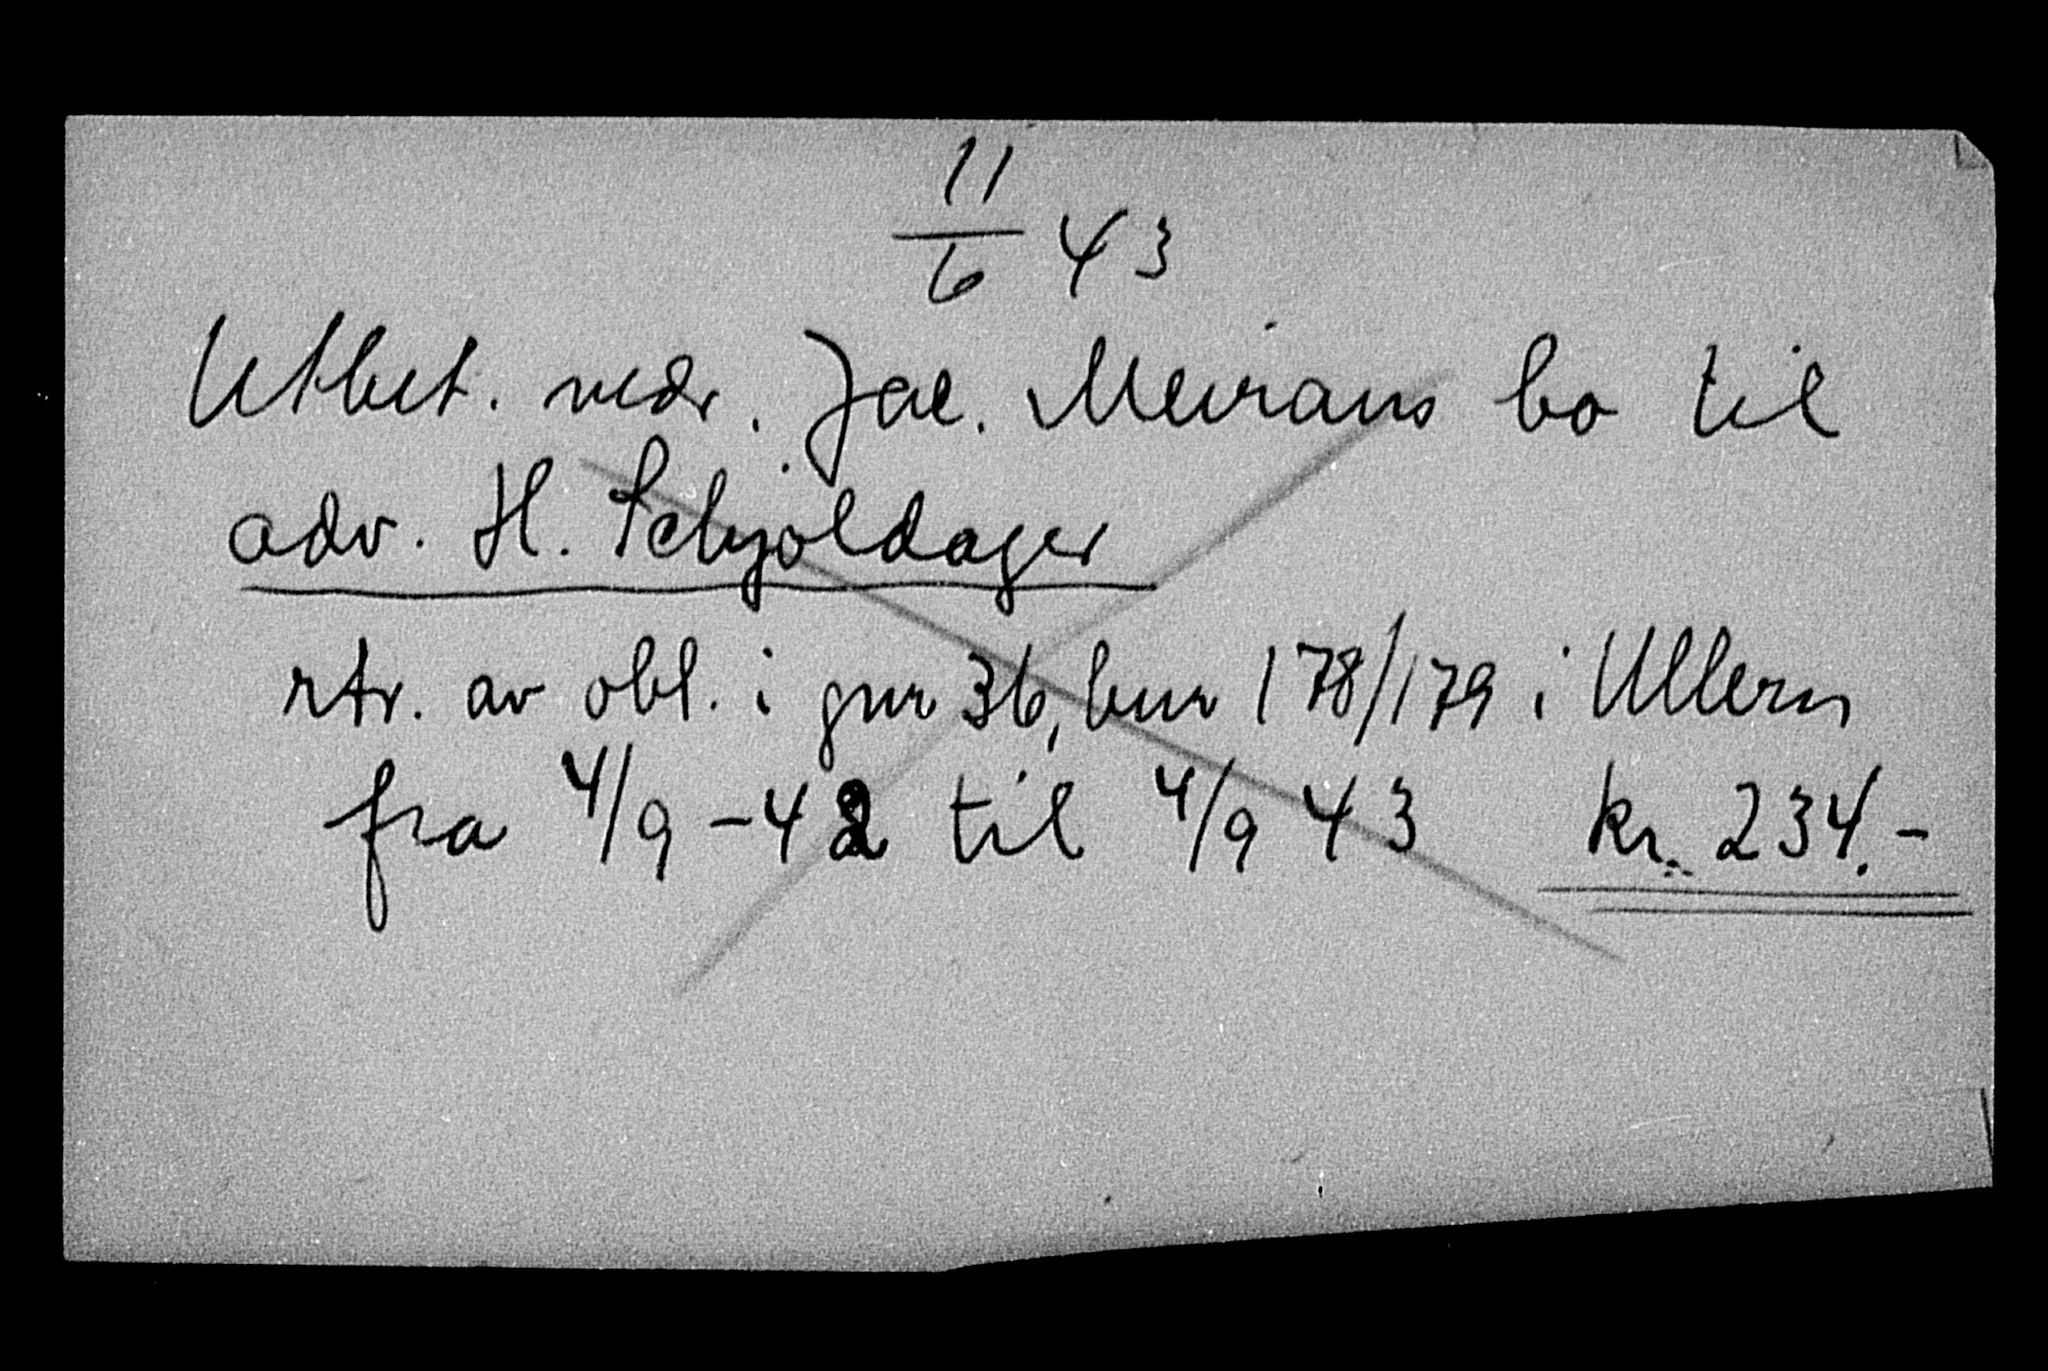 11/6 43
Utbet. vedr. Jac. Meirans bo til
adv. H. Schjöldager
rtr. av obl. i gnr 36, bnr 178/179 i Ullern
fra 4/9-42 til 4/9 43 kr. 234.-